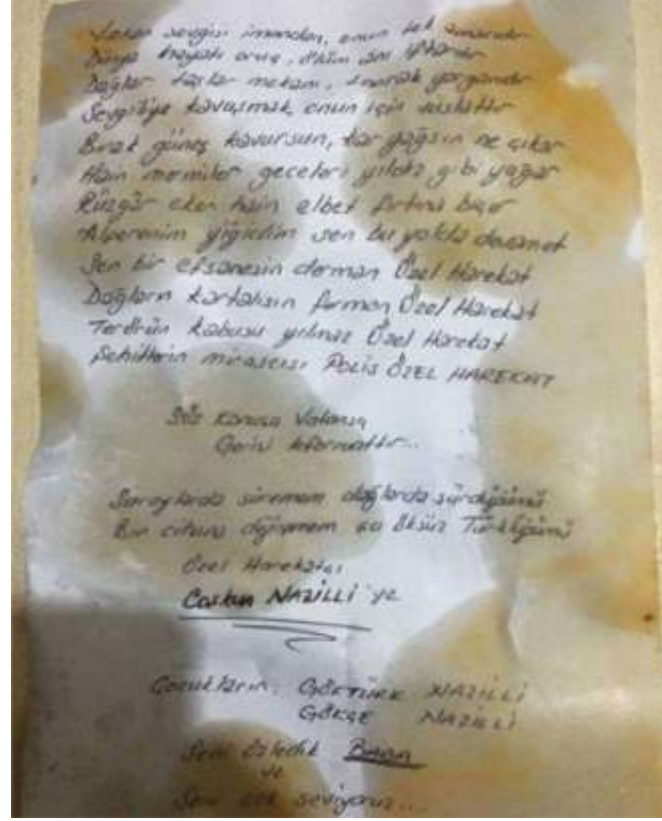 Vatan sevgisi imandan, onun tek
Dünya hayatı oruç, ölüm anı iftardır
Dağlar taşlar mekanı, toprak yorgandır
Sevgiliye kavuşmak, onun için vuslattır
Bırak güneş kavursun, kar yağsın ne çıkar
Hain mermiler geceleri yıldız gibi yağar
Rüzgâr eken hain elbet fırtına biçer
Alperenim yiğidim sen bu yolda devam et
Sen bir efsanesin derman Özel Harekat
Dağların kartalısın ferman Özel Harekat
Terörün kabusu yılmaz Özel Harekat
Şehitlerin mirasçısı POLİS ÖZEL HAREKAT
Söz Konusu Vatansa
Gerisi teferruattır...
Saraylarda süremem dağlarda sürdüğümü
Bin cihana değişmem şu öksüz Türklüğümü
Özel Harekatçı
Coşkun NAZİLLİ'ye
Çocukların: GÖKTÜRK NAZİLLİ
GÖKÇE NAZİLLİ
Seni özledik BABA
ve
Seni çok seviyoruz....